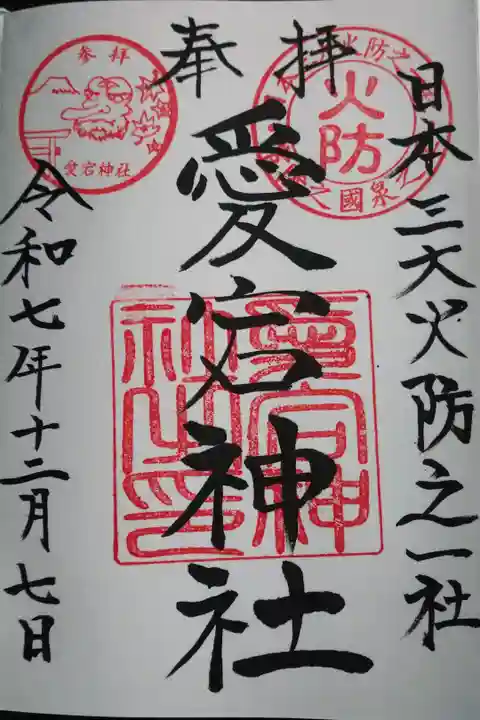 奉拝
日本三大火防之一社
愛宕神社
令和七年十二月七日
参拝
愛宕神社
火防
愛宕神社之印